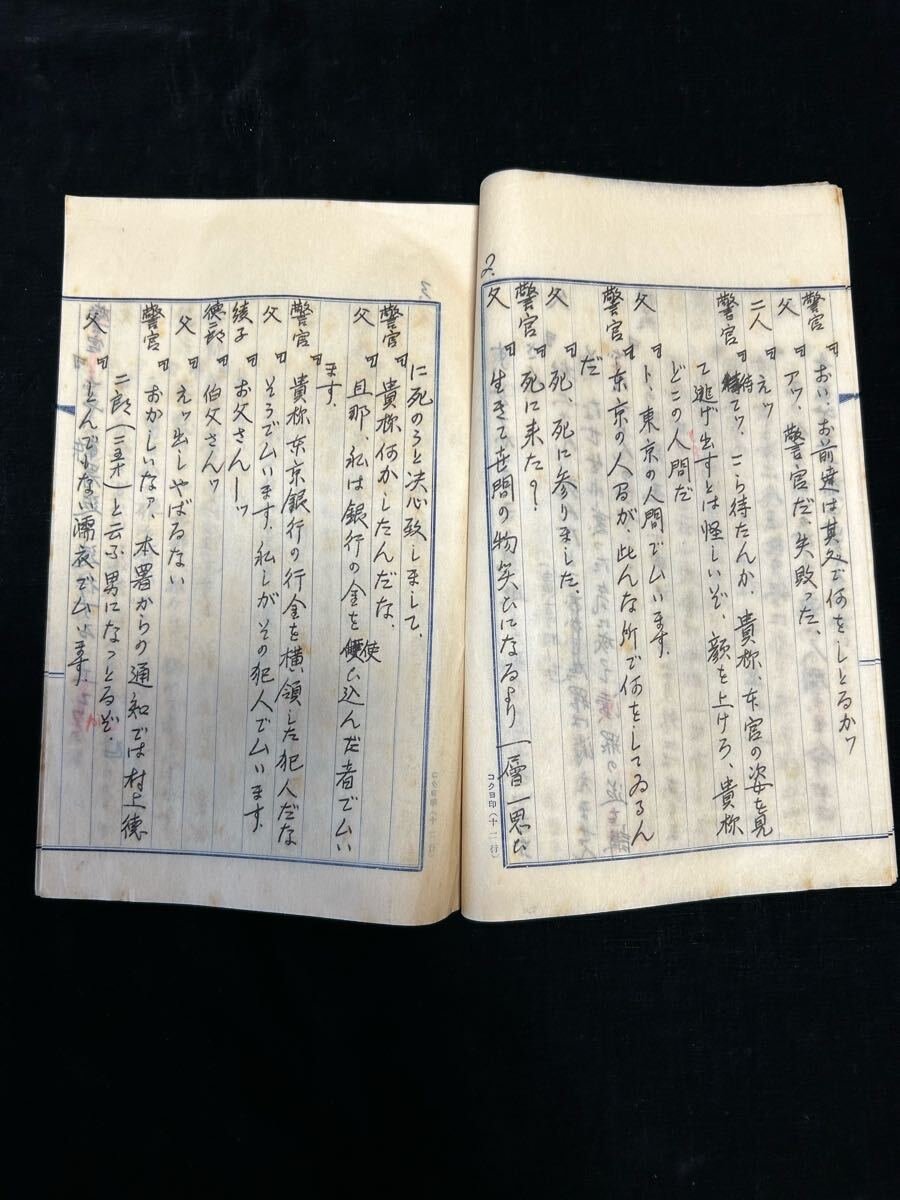 2.
警官 「おい、お前達は其処で何をしとるかッ
父 「アッ、警官だ、失敗った、
二人 「えッ
警官 「待てッ、こら待たんか、貴様、本官の姿を見
て逃げ出すとは怪しいぞ、顔を上げろ、貴様
どこの人間だ
父 「ト、東京の人間でムいます。
警官 「東京の人間が、此んな所で何をしてゐるん
だ
父 「死、死に参りました、
警官 「死に来た?
父 「生きて世間の物笑ひになるより、一層一思ひ
コクヨ印(十二行)
3.
に死のうと決心致しまして、
警官 「貴様何かしたんだな、
父 「旦那、私は銀行の金を使ひ込んだ者でムい
ます、
警官 「貴様東京銀行の行金を横領した犯人だな
父 「そうでムいます、私しがその犯人でムいます、
綾子 「お父さんーッ
徳二郎 「伯父さんッ
父 「えッ出しやばるない
警官 「おかしいなァ、本署からの通知では村上徳
二郎(二五才)と云ふ男になっとるぞ、
父 「とんでもない濡衣でムいます、
コクヨ印(十二行)